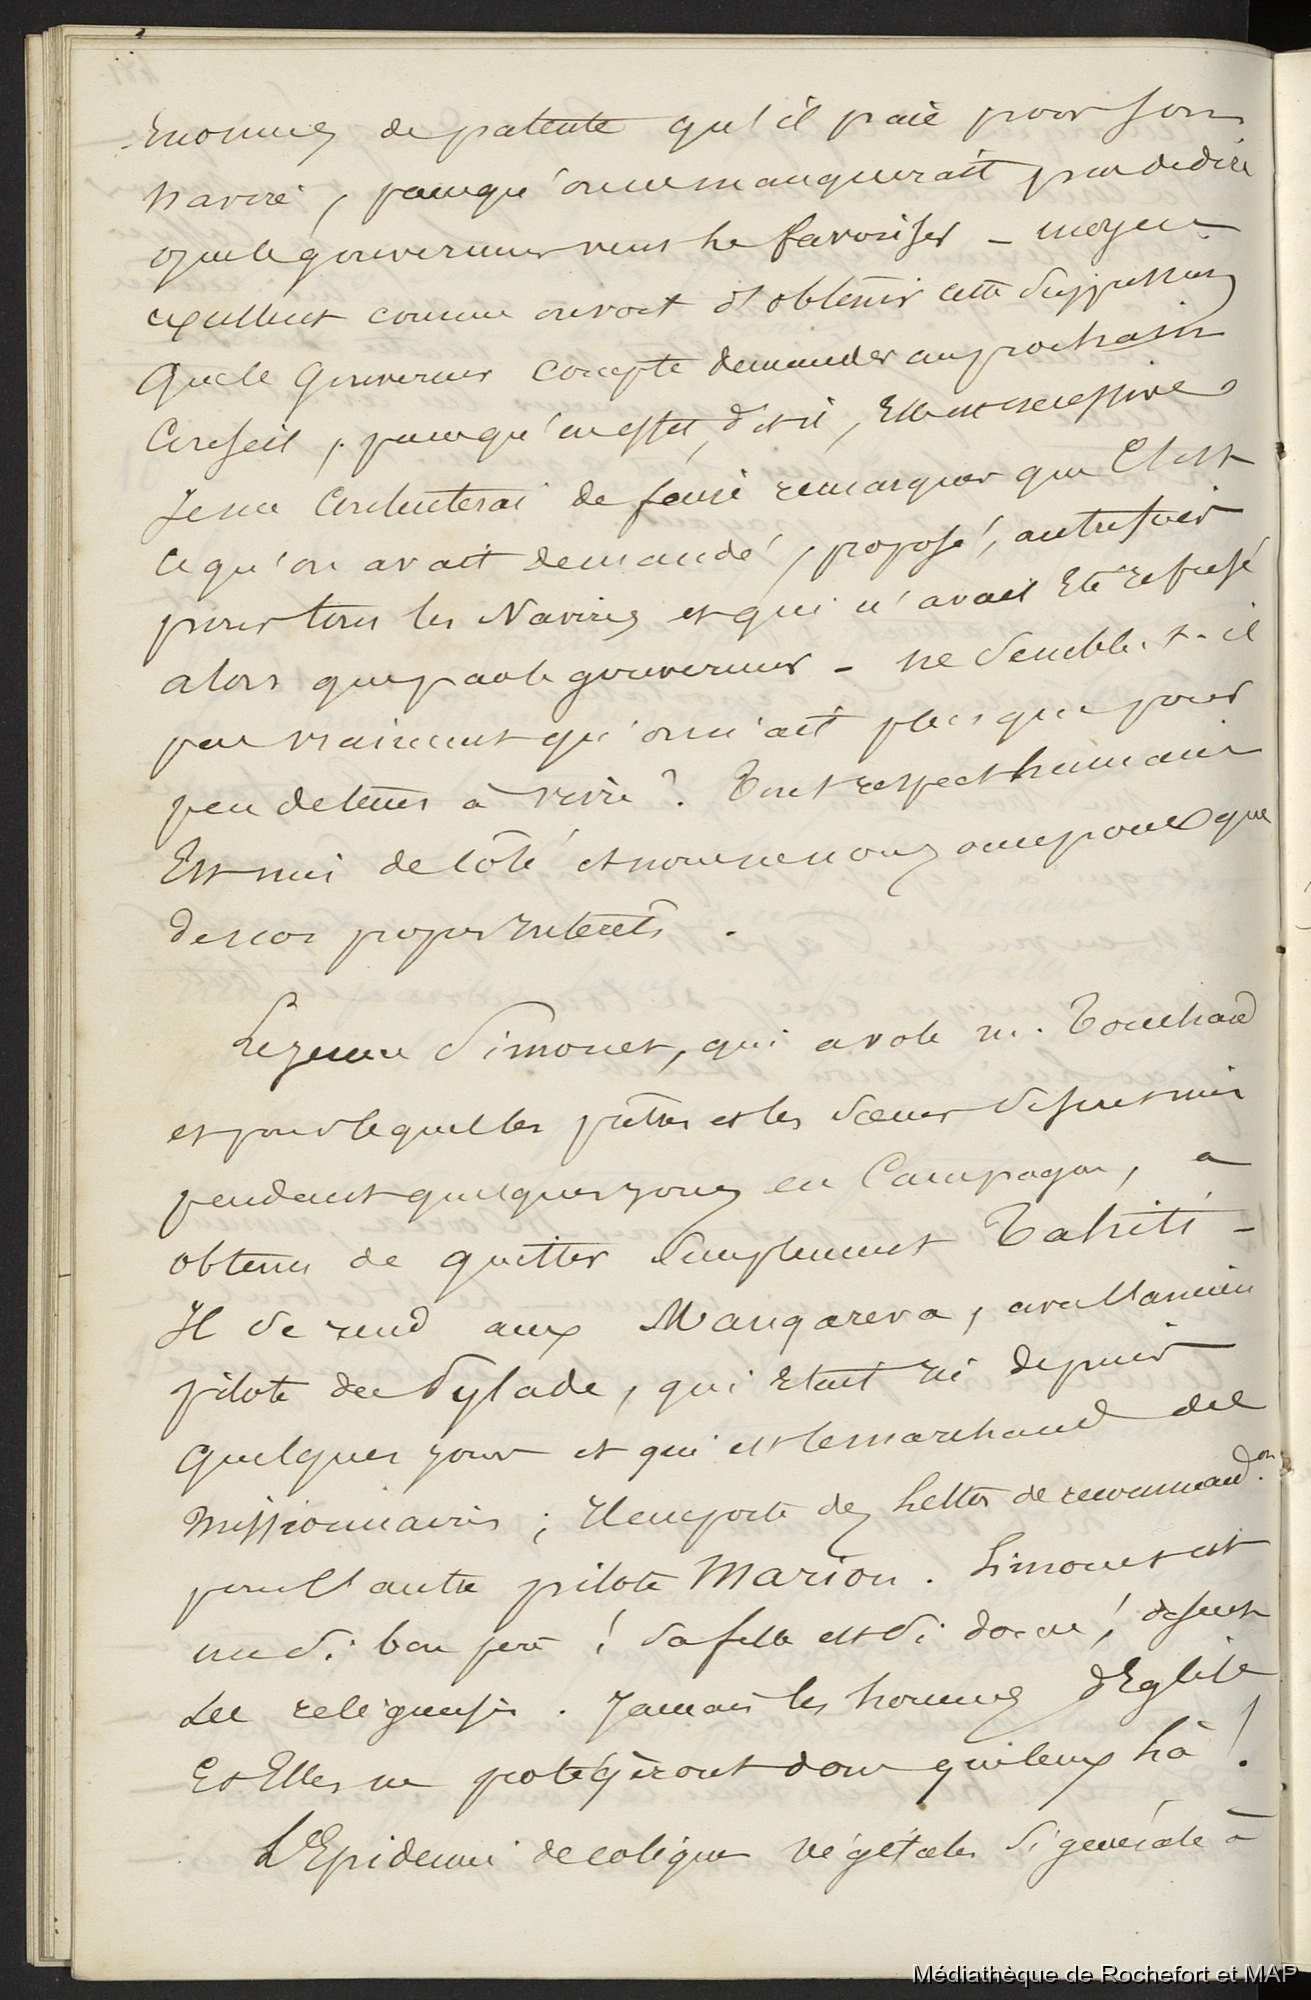 énormes de patente qu'il paie pour son
navire, parcequ'on ne manquerait pas de dire
que le gouverneur veut le favoriser – moyen
excellent comme on voit d'obtenir cette suppression
que le Gouverneur compte demander au prochain
Conseil, parcequ'en effet, dit-il, Elle est excessive
Je me contenterai de faire remarquer que C'est
ce qu'on avait demandé, proposé, autrefois
pour tous les Navires et qui n'avait été refusé
alors que par le gouverneur – ne semble-t-il
pas vraiment qu'on n'ait plus que pour
peu de tems à vivre? Tout respect humain
Est mis de côté et nous ne nous occupons que
de nos propres Intérêts.
Le jeune Simonet, qui a volé M. Touchard
et pour lequel les prêtres et les sœurs se sont mis
pendant quelques jours en Campagne, a
obtenu de quitter simplement Tahiti –
Il se rend aux Mangareva, avec l'ancien
pilote du Pylade, qui était ici depuis
quelques jours et qui est le marchand des
missionnaires; Il emporte des lettres de recommand.on
pour l'autre pilote Marion. Simonet est
un si bon père! sa fille est si douce! disent
les religieuses. Jamais les hommes d'Eglise
Et Elles ne protégeront donc que ceux là!
L'Epidémie de coliques végétales si générale à
Médiathèque de Rochefort et MAP